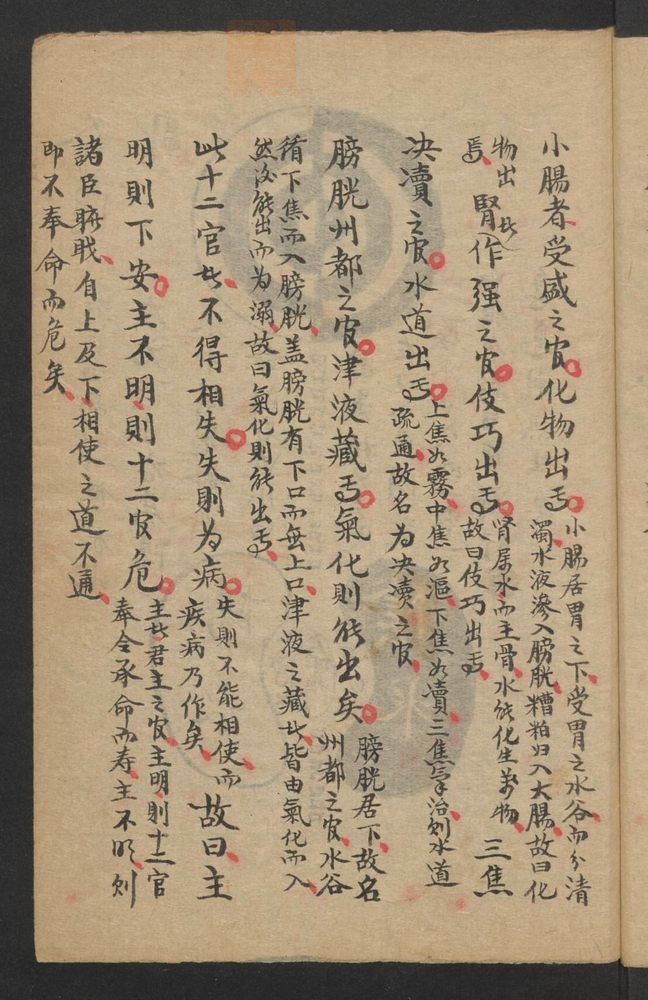 小腸者受盛之官化物出焉
小腸居胃之下受胃之水谷而分清
濁水液滲入膀胱糟粕归入大腸故曰化
物出
焉
腎者作强之官伎巧出焉
腎属水而主骨水能化生萬物
故曰伎巧出焉
三焦
决瀆之官水道出焉
上焦如霧中焦如漚下焦如瀆三焦氣治则水道
疏通故名为决瀆之官
膀胱州都之官津液藏焉氣化則能出矣
膀胱居下故名
州都之官水谷
循下焦而入膀胱盖膀胱有下口而無上口津液之藏者皆由氣化而入
然後能出而为溺故曰氣化則能出焉
此十二官者不得相失失則为病
失則不能相使而
疾病乃作矣
故曰主
明則下安主不明則十二官危
主者君主之官主明則十二官
奉令承命而寿主不明则
諸臣曠职自上及下相使之道不通
即不奉命而危矣